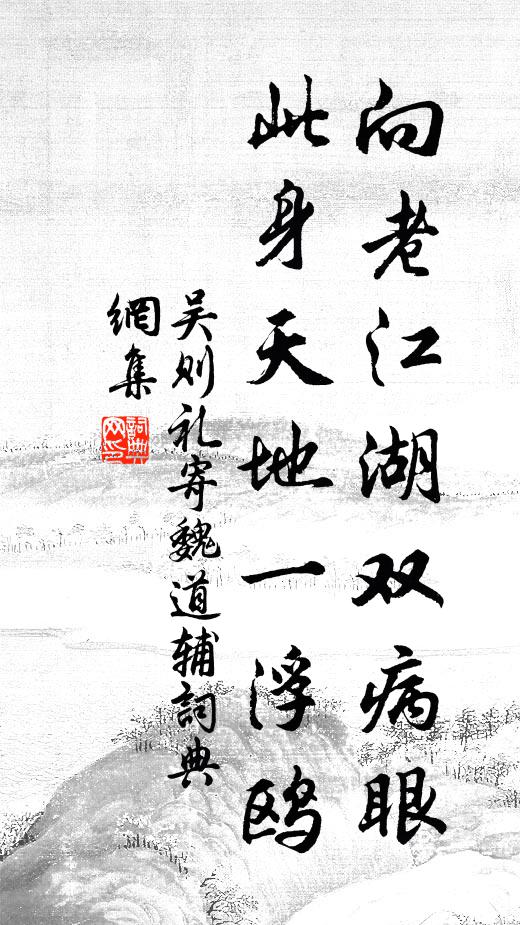 向老江湖双病眼
此身天地一浮鸥
吴则礼寄魏道辅詞典
網集
詞典網印